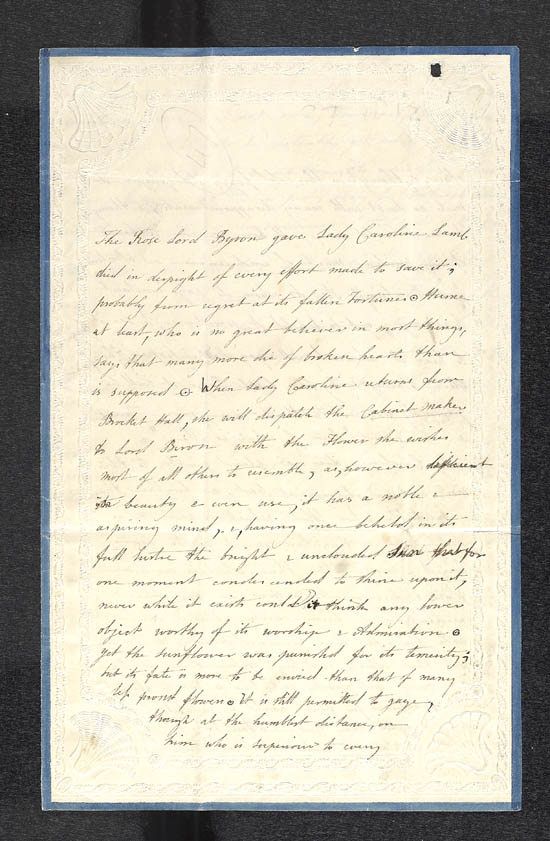 The Rose Lord Byron gave Lady Caroline Lamb
died in despight of every effort made to save it;
probably from regret at its fallen Fortunes. Hume
at least, who is no great believer in most things,
says that many more die of broken hearts than
is supposed. When Lady Caroline returns from
Brocket Hall, she will dispatch the Cabinet maker
to Lord Biron with the Flower she wishes
most of all others to resemble, as, however deficient
its beauty & even use, it has a noble &
aspiring mind, &, having once beheld in its
full lustre the bright & unclouded Sun that for
one moment condescended to shine upon it,
never while it exists could it think any lower
object worthy of its worship & Admiration.
yet the sunflower was punished for its temerity;
but its fate is more to be envied than that of many
less proud flowers. It is still permitted to gaze,
though at the humblest distance, on
him who is superiour to every